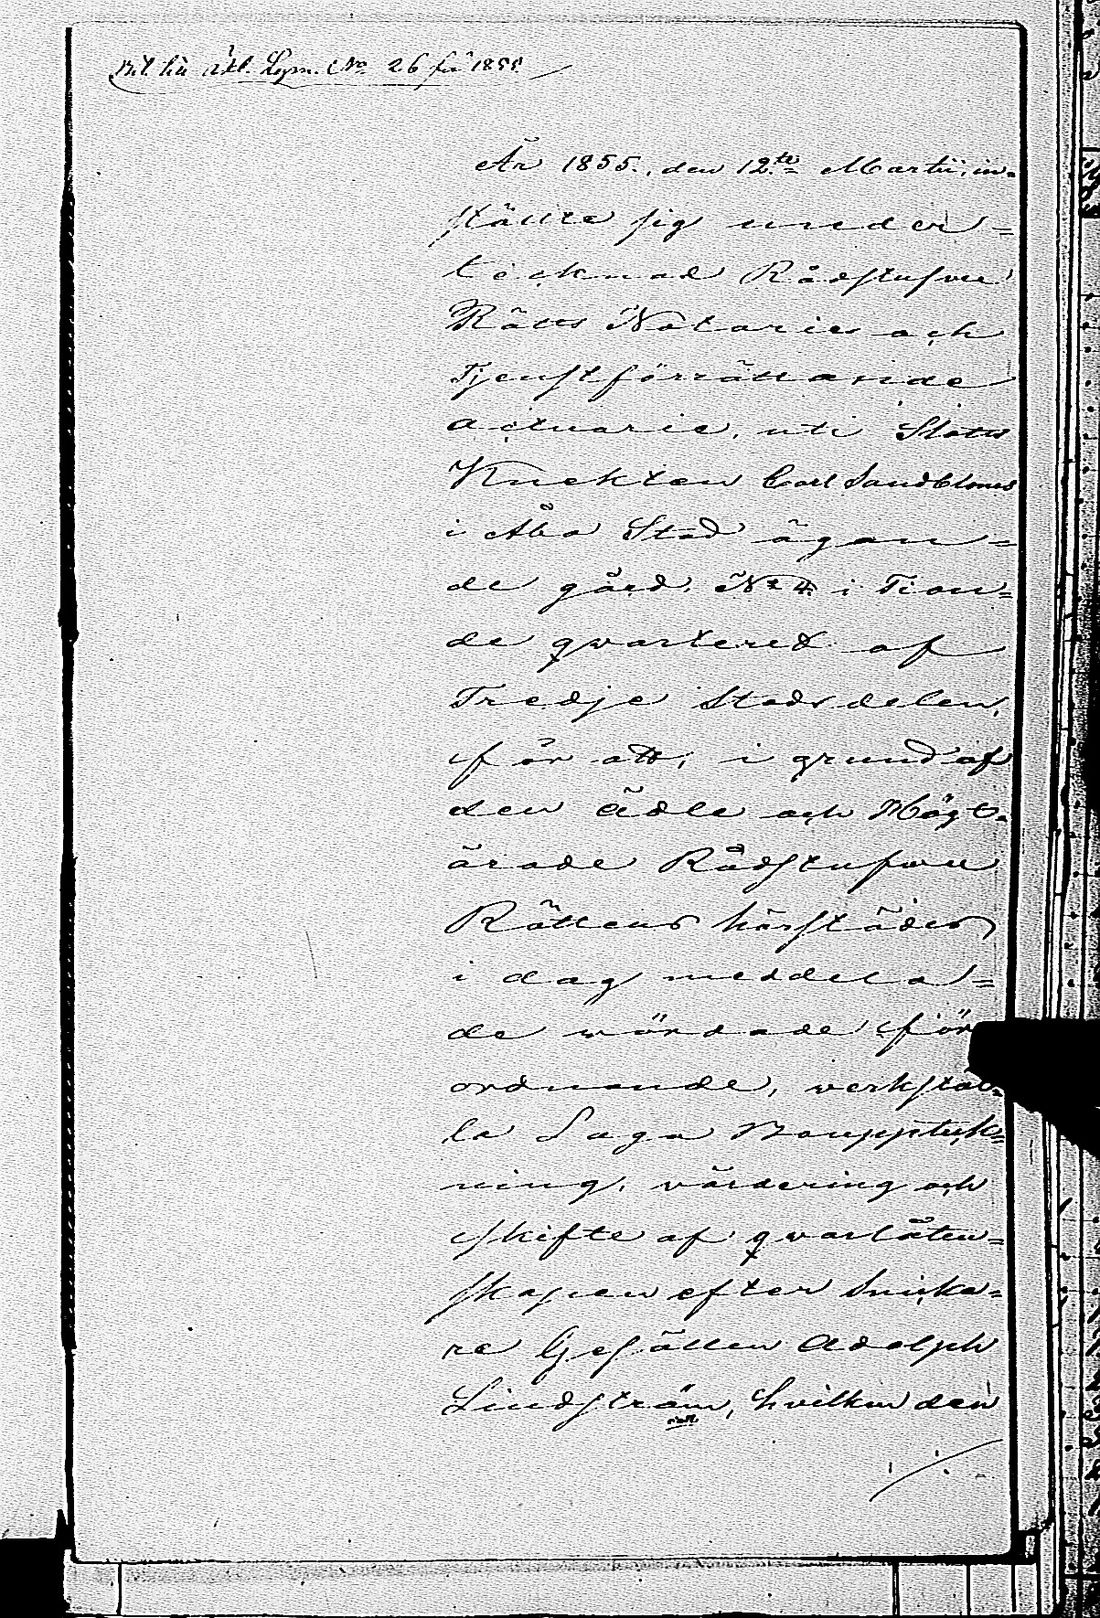 Bil. till åkl. Lgm. No 26 för 1855.
År 1855, den 12.te Martii, in-
ställte sig under-
tecknad Rådstufvu
Rätts Notarie och
Tjenstförrättande
Actuarie, uti Slotts
Knekten Carl Sandbloms
i Åbo Stad ägan-
de gård, No 4. i Tion-
de qvarteret af
Tredje Stadsdelen,
för att, i grund af
den Ädle och Högt-
ärade Rådstufvu
Rättens härstädes
i dag meddela-
de wördade för-
ordnande, verkstäl-
la Laga Bouppteck-
ning, värdering och
skifte af qvarlåten-
skapen efter Snicka-
re Gesällen Adolph
Lindström, hvilken den